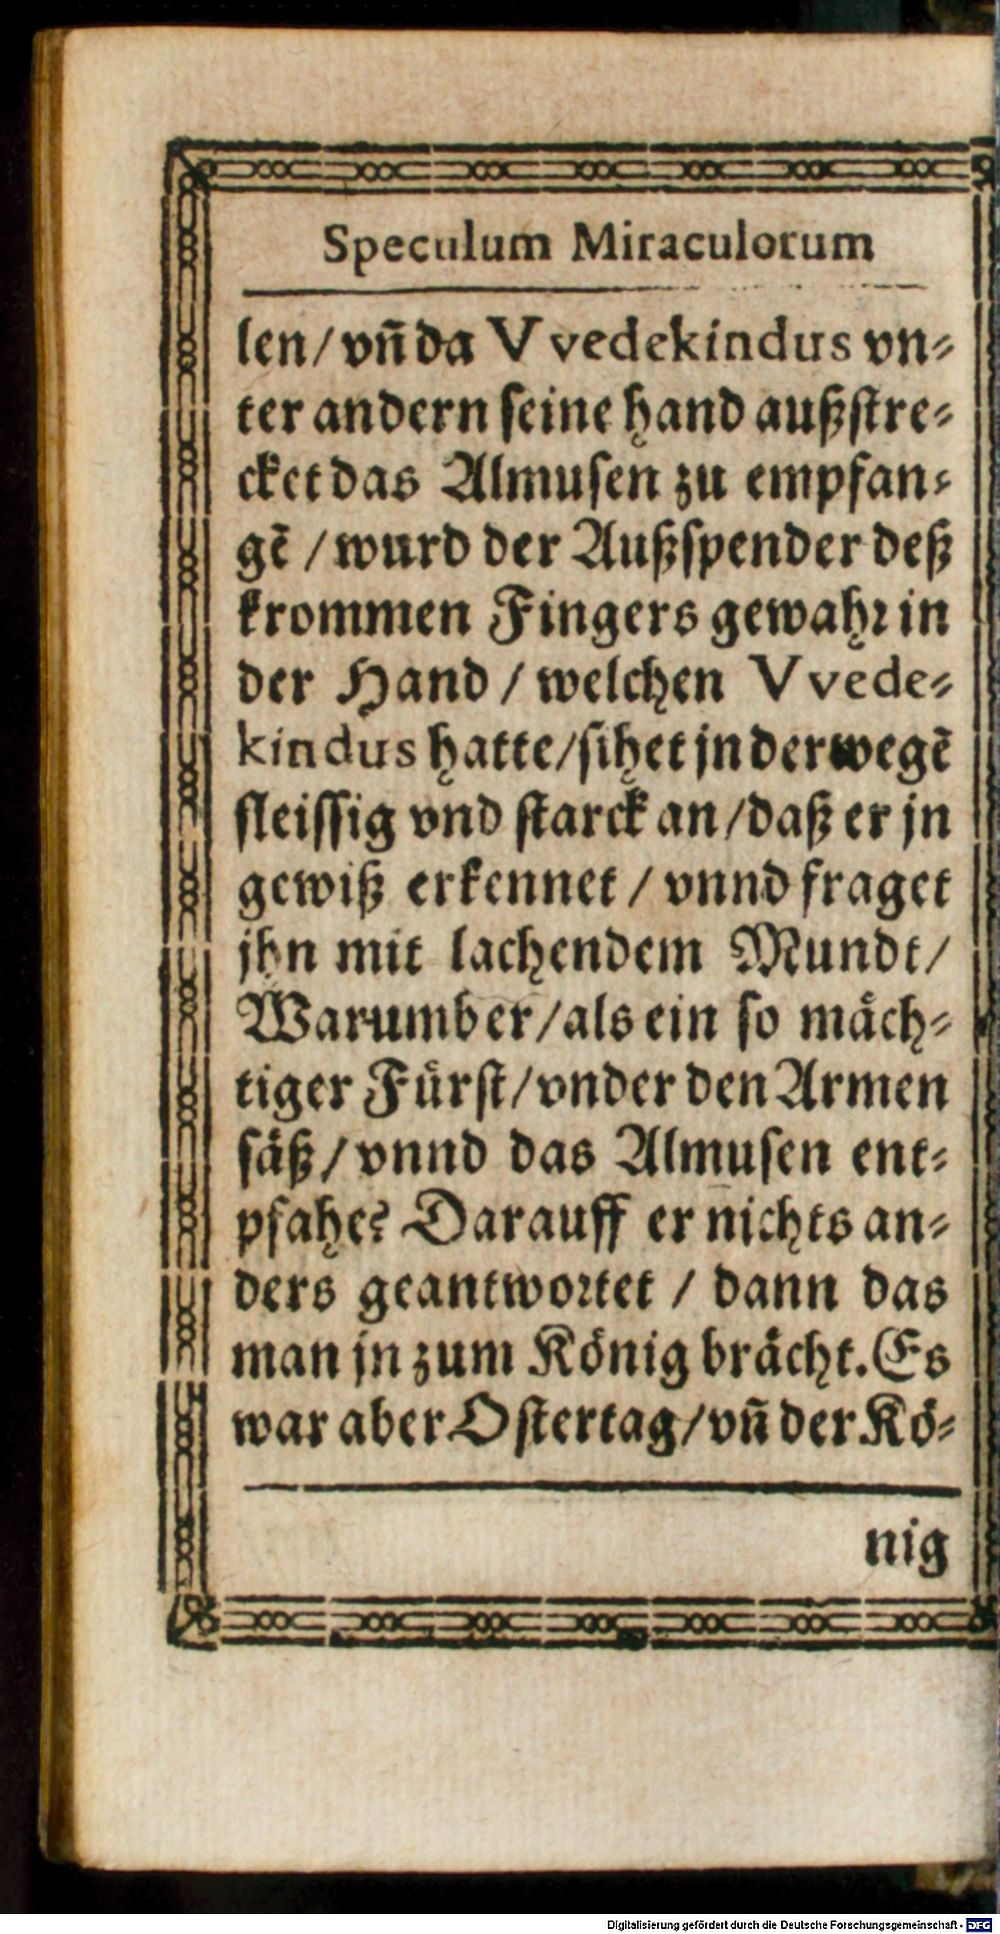 Speculum Miraculorum
len/ vñ da Vvedekindus vn⸗
ter andern seine hand außstre⸗
cket das Almusen zu empfan⸗
gẽ / wurd der Außspender deß
krommen Fingers gewahr in
der Hand / welchen Vvede⸗
kindus hatte/sihet jn derwegẽ
fleissig vnd starck an/daß er jn
gewiß erkennet / vnnd fraget
jhn mit lachendem Mundt/
Warumb er/als ein so mäch⸗
tiger Fürst/vnder den Armen
säß/vnnd das Almusen ent⸗
pfahe? Darauff er nichts an⸗
ders geantwortet / dann das
man jn zum König brächt. Es
war aber Ostertag/vñ der Kö⸗
nig
Digitalisierung gefördert durch die Deutsche Forschungsgemeinschaft - DFG